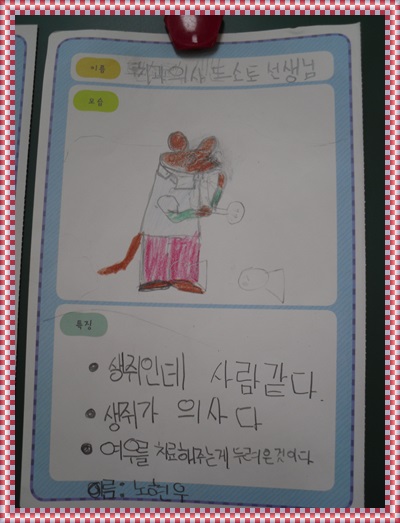 이름 치과 의사 드소토 선생님
모습
특징
• 생쥐인데 사람같다.
• 생쥐가 의사다
• 여우를 치료해주는게 두려운것이다
이름 : 노현우